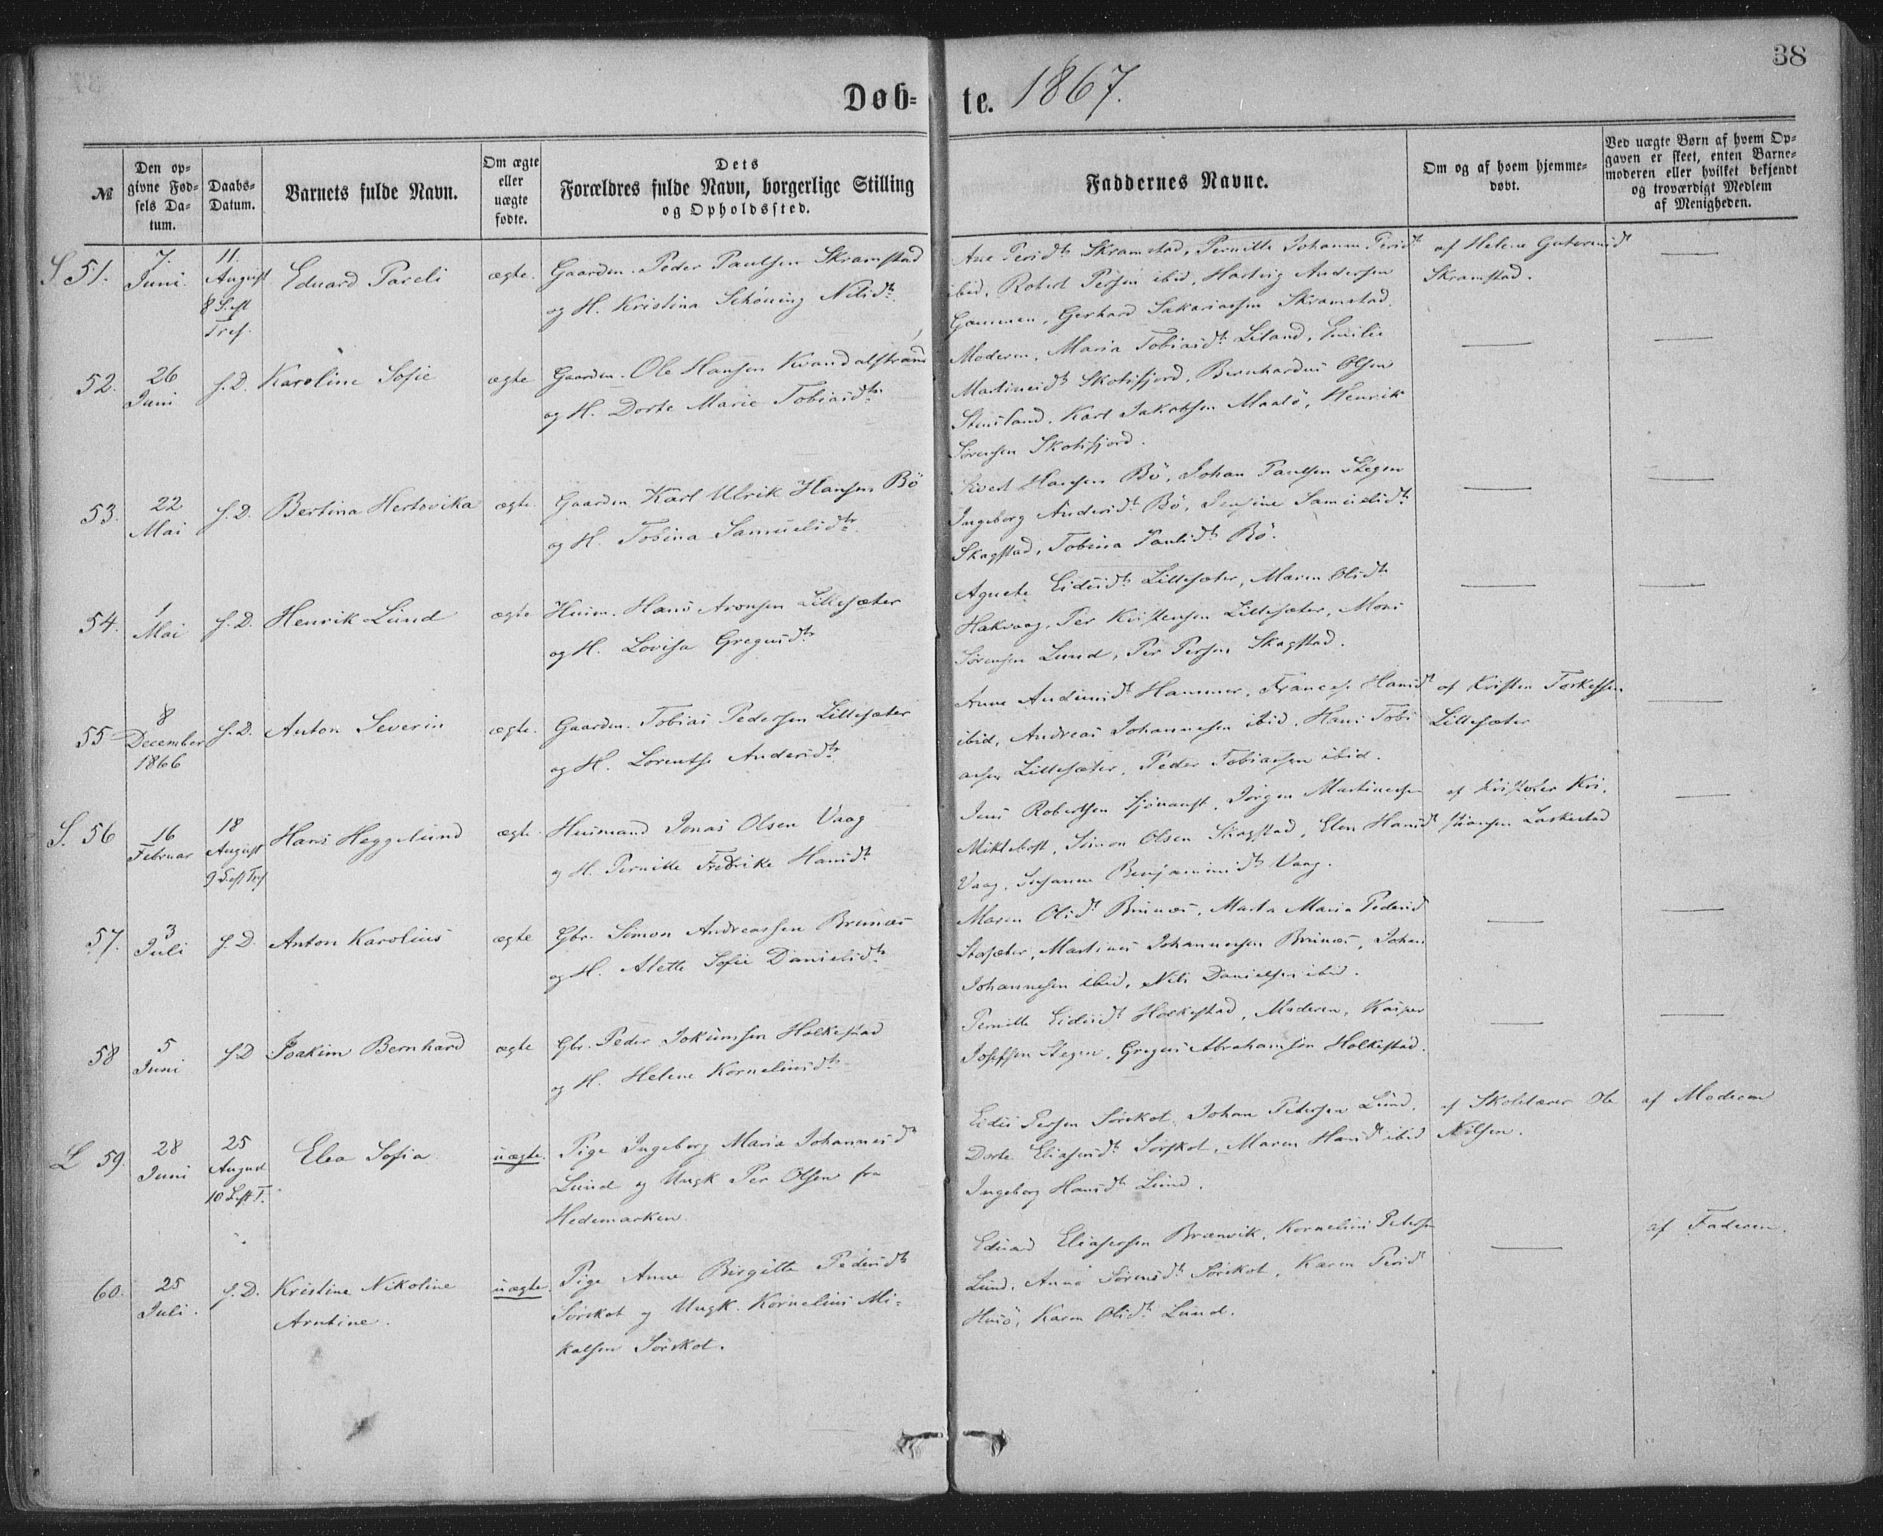 38
Døb- te. 1867.
№
Den op-
givne Fød-
sels Da-
tum.
Daabs-
Datum.
Barnets fulde Navn.
Om ægte
eller
uægte
fødte.
Dets
Forældres fulde Navn, borgerlige Stilling
og Opholdssted.
Faddernes Navne.
Om og af hvem hjemme-
døbt.
Ved uægte Børn af hvem Op-
gaven er skeet, enten Barne-
moderen eller hvilket bekjendt
og troværdigt Medlem
af Menigheden.
S. 51.
7.
Juni
11.
August
8 S. eft
Tref.
Eduard Pareli
ægte.
Gaardm. Peder Paulsen Skramstad
og H. Kristina Schöning Nilsdtr
Ane Persdtr Skramstad, Pernitte Johanna Persdtr
ibid, Robert Persen ibid, Hartvig Andersen
Gammen, Gerhard Sakariasen Skramstad.
af Helene
Skramstad.
52.
26
Juni
s. D.
Karoline Sofie
ægte
Gaardm. Ole Hansen Kvandalstrand
og H. Dorte Marie Tobiasdtr
Moderen, Maria Tobiasdtr Leland, Emilie
Martinsdtr Skotsfjord, Bernhardus Olsen
Stensland, Karl Jakobsen Maalö, Henrik
Sörensen Skotsfjord.
53.
22
Mai
s. D.
Bertina Hertevika
ægte.
Gaardm. Karl Ulrik Hansen Bö
og H. Tobina Samuelsdtr
Sivert Hansen Bö, Johan Paulsen Stegen
Ingeborg Andersdtr Bö, Jensine Samuelsdtr
Skagstad, Tobina Paulsdtr Bö.
54.
1
Mai
s. D.
Henrik Lund
ægte
Husm. Hans Aronsen Lillesæter
og H. Lovisa Gregusdtr
Agnete Eidisdtr Lillesæter, Maren Olsdtr
Hakvaag, Per Kristensen Lillesæter, Mons
Sörensen Lund, Per Persen Skagstad.
55
8
December
1866
s. D.
Anton Severin
ægte.
Gaardm. Tobias Pedersen Lillesæter
og H. Lorentse Andersdtr
Anne Andersdtr Hammer, Hansdtr
ibid, Andreas Johannesen ibid, Hans Tobi
asen Lillesæter, Peder Tobiassen ibid.
af Kristen Torkelsen
Lillesæter
S. 56
16
Februar
18
August
9 S. eft Tref
Hans Heggelund
ægte.
Husmand Jonas Olsen Vaag
og H. Pernitte Fredrike Hansdtr
Jens Robertsen Sjövaust, Jörgen Martinussen
Miklebost, Simon Olsen Skagstad, Elen Hansdtr
Vaag, Susanne Benjaminsdtr Vaag.
af Kristofer Kri-
stiansen Laskestad
57.
3
Juli
s. D.
Anton Karolius
ægte
Gbr. Simon Andreassen Brunæs
og H. Alette Sofie Danielsdtr
Maren Olsdtr Brunæs, Marta Maria Pedersd
Storsæter, Martinus Johannesen Brunæs, Johan
Johannesen ibid, Nils Danielsen ibid.
58
5
Juni
s. D
Joakim Bernhard
ægte
Gbr. Peder Jokumsen Holkestad
og H. Helene Korneliusdtr
Pernitte Eidisdtr Holkestad, Moderen, Kasper
Josefsen Stegen, Gregus Abrahamsen Holkestad.
L 59.
28
Juni
25
August
10 S. eft T.
Elea Sofia
uægte.
Pige Ingeborg Maria Johannesd
Lund og Ungk. Per Olsen fra
Hedemarken.
Eidis Persen Sörskot, Johan Petersen Lund,
Dorte Eliasersdtr Sörskot, Maren Hansdtr ibid
Ingeborg Hansdtr Lund.
af Skolelærer Ole
Nilsen.
af Moderen
60.
25
Juli.
s. D.
Kristine Nikoline
Arntine.
uægte.
Pige Anne Birgitte Pedersdtr
Sörskot og Ungk. Kornelius Mi-
kalsen Sörskot.
Eduard Eliasersen Brænvik, Kornelius Petersen
Lund, Anna Sörensdtr Sörskot, Karen Persdtr
Husö, Karen Olsdtr Lund.
af Faderen.